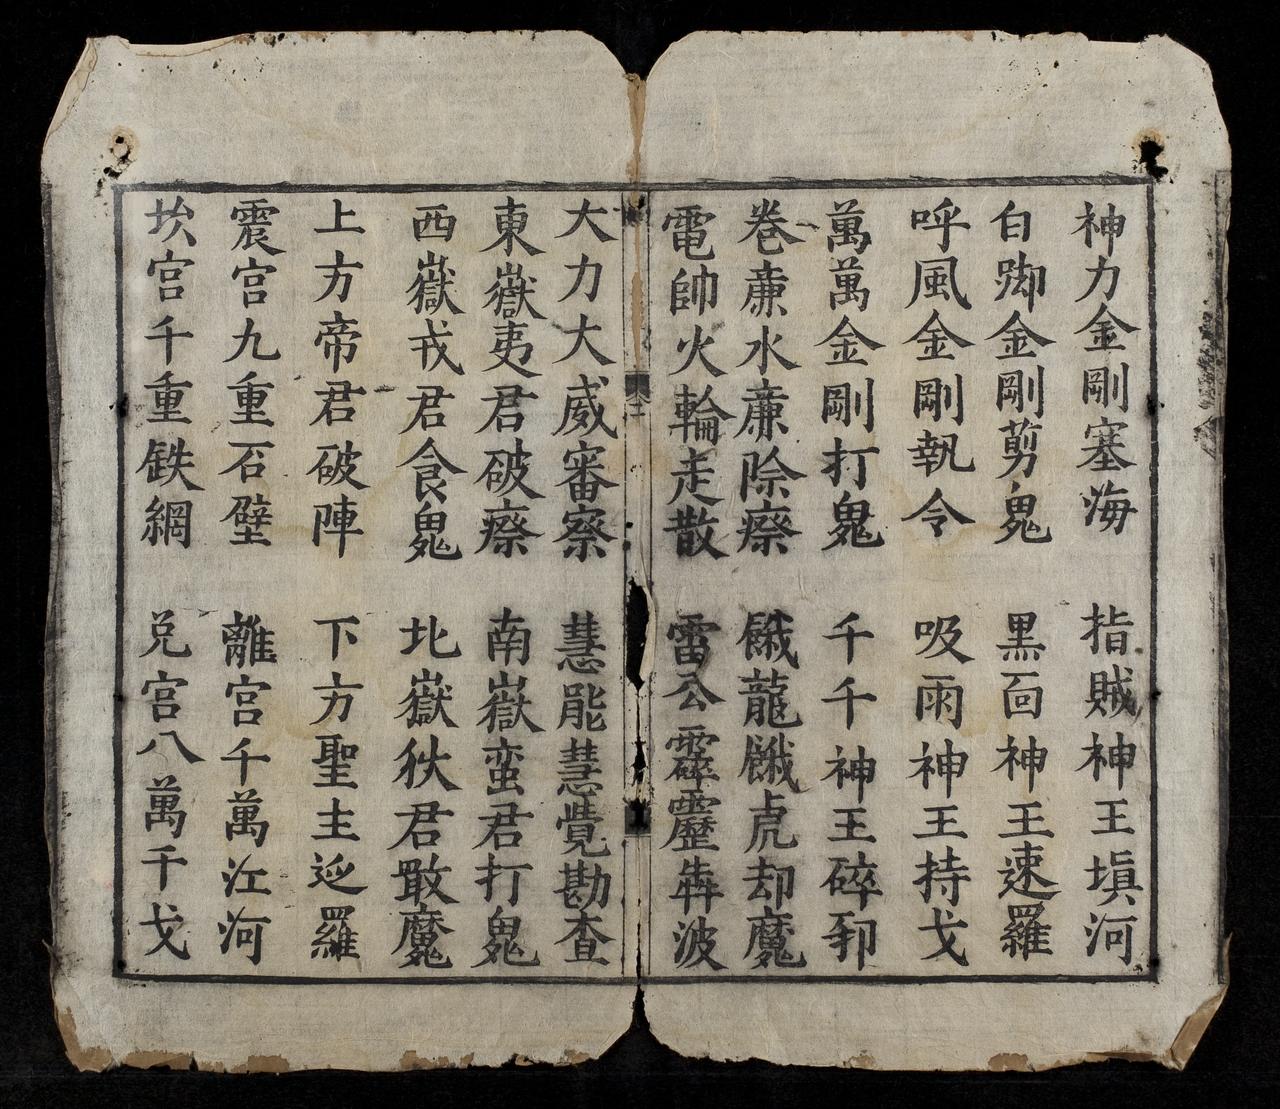 神力金剛塞海 指賊神王塡河
白踋金剛剪鬼 黒靣神王速羅
呼風金剛執令 吸雨神王持戈
萬萬金剛打鬼 千千神王碎
巻亷水亷除瘵 餓龍餓虎却魔
電帥火輪走散 雷公霹靂犇波
大力大威審察 慧能慧覺勘查
東嶽夷君破瘵 南嶽蛮君打鬼
西嶽戎君食鬼 北嶽狄君敢魔
上方帝君破陣 下方聖主廵羅
震宫九重石壁 離宫千萬江河
坎宫千重鉄綱 兑宫八萬千戈